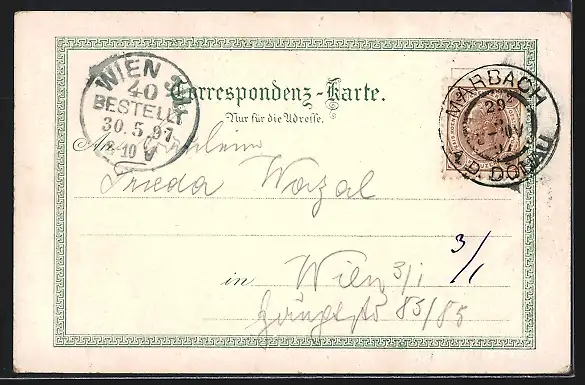 WIEN 3/1
40
BESTELLT
30.5.97
8-10 V
Correspondenz-Karte.
Nur für die Adresse.
MARBACH
29
A.D. DONAU
An Fräulein
Frieda
3/1
in Wien 3/1
85/85